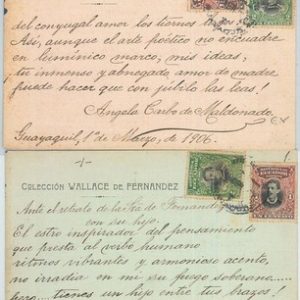 del conyugal amor los tiernos
Así, aunque el arte poético no encuadre
en lumínico marco, mis ideas;
tu inmenso y abnegado amor de madre
puede hacer que con jubilo las leas!
Angela Carbo de Maldonado.
Guayaquil, 1º de Marzo, de 1906.
COLECCIÓN WALLACE DE FERNANDEZ
Ante el retrato de la Sra de Fernandez
con su hijo.
El estro inspirador del pensamiento
que presta al verbo humano
ritmos vibrantes y armonioso acento,
no irradia en mi su fuego soberano
pero tienes un hijo entre tus brazos!